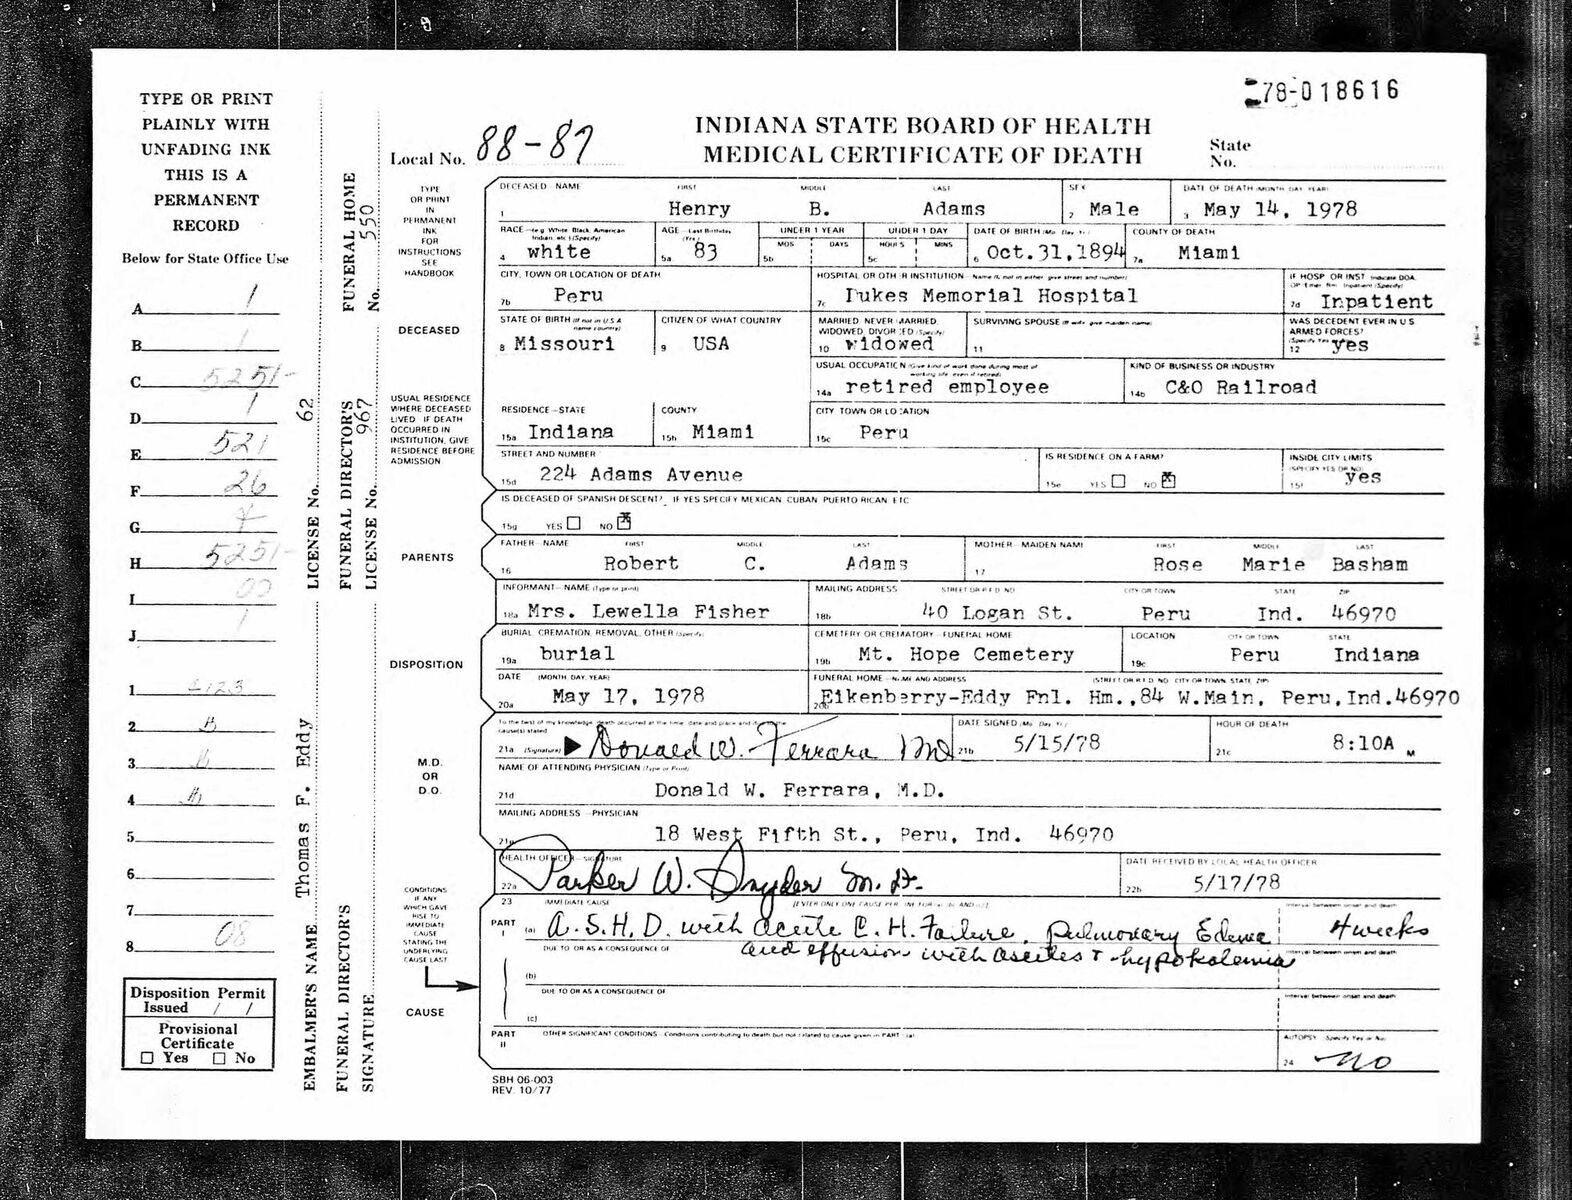 78-018616
TYPE OR PRINT
PLAINLY WITH
UNFADING INK
THIS IS A
PERMANENT
RECORD
Below for State Office Use
A 1
B 1
C 5251-
D 1
E 521
F 26
G
H 5251-
I 00
J 1
1 4123
2
3
4
5
6
7
8 08
Disposition Permit
Issued / /
Provisional
Certificate
☐ Yes ☐ No
EMBALMER'S NAME Thomas F. Eddy LICENSE No. 62
FUNERAL DIRECTOR'S SIGNATURE FUNERAL DIRECTOR'S LICENSE No. 967 FUNERAL HOME No. 550
INDIANA STATE BOARD OF HEALTH
MEDICAL CERTIFICATE OF DEATH
Local No. 88-87
State
No.
TYPE
OR PRINT
IN
PERMANENT
INK
FOR
INSTRUCTIONS
SEE
HANDBOOK
DECEASED NAME FIRST MIDDLE LAST SEX DATE OF DEATH (MONTH, DAY, YEAR)
1 Henry B. Adams 2 Male 3 May 14, 1978
RACE—(e.g. White, Black, American Indian, etc.) (Specify) AGE—Last Birthday (Yrs.) UNDER 1 YEAR UNDER 1 DAY DATE OF BIRTH (Mo. Day, Yr.) COUNTY OF DEATH
MOS DAYS HOURS MINS
4 white 5a 83 5b 5c 6 Oct.31,1894 7a Miami
CITY, TOWN OR LOCATION OF DEATH HOSPITAL OR OTHER INSTITUTION—Name (If not in either, give street and number) IF HOSP OR INST Indicate DOA, OP Emer. Rm. Inpatient (Specify)
7b Peru 7c Dukes Memorial Hospital 7d Inpatient
DECEASED
STATE OF BIRTH (If not in U.S.A. name country) CITIZEN OF WHAT COUNTRY MARRIED, NEVER MARRIED, WIDOWED, DIVORCED (Specify) SURVIVING SPOUSE (If wife, give maiden name) WAS DECEDENT EVER IN U.S. ARMED FORCES? (Specify Yes or No)
8 Missouri 9 USA 10 widowed 11 12 yes
USUAL OCCUPATION (Give kind of work done during most of working life, even if retired) KIND OF BUSINESS OR INDUSTRY
14a retired employee 14b C&O Railroad
USUAL RESIDENCE
WHERE DECEASED
LIVED IF DEATH
OCCURRED IN
INSTITUTION, GIVE
RESIDENCE BEFORE
ADMISSION
RESIDENCE—STATE COUNTY CITY TOWN OR LOCATION
15a Indiana 15b Miami 15c Peru
STREET AND NUMBER IS RESIDENCE ON A FARM? INSIDE CITY LIMITS (SPECIFY YES OR NO)
15d 224 Adams Avenue 15e YES ☐ NO ☒ 15f yes
IS DECEASED OF SPANISH DESCENT? IF YES SPECIFY MEXICAN CUBAN PUERTO RICAN ETC
15g YES ☐ NO ☒
PARENTS
FATHER—NAME FIRST MIDDLE LAST MOTHER—MAIDEN NAME FIRST MIDDLE LAST
16 Robert C. Adams 17 Rose Marie Basham
INFORMANT—NAME (Type or print) MAILING ADDRESS STREET OR R.F.D. NO CITY OR TOWN STATE ZIP
18a Mrs. Lewella Fisher 18b 40 Logan St. Peru Ind. 46970
DISPOSITION
BURIAL, CREMATION, REMOVAL, OTHER (Specify) CEMETERY OR CREMATORY—FUNERAL HOME LOCATION CITY OR TOWN STATE
19a burial 19b Mt. Hope Cemetery 19c Peru Indiana
DATE (MONTH, DAY, YEAR) FUNERAL HOME—NAME AND ADDRESS (STREET OR R.F.D. NO CITY OR TOWN STATE ZIP)
20a May 17, 1978 20b Eikenberry-Eddy Fnl. Hm.,84 W.Main, Peru,Ind.46970
M.D.
OR
D.O.
To the best of my knowledge, death occurred at the time, date and place and due to the cause(s) stated DATE SIGNED (Mo. Day, Yr.) HOUR OF DEATH
21a (Signature) ▶ Donald W. Ferrara MD 21b 5/15/78 21c 8:10A M
NAME OF ATTENDING PHYSICIAN (Type or Print)
21d Donald W. Ferrara, M.D.
MAILING ADDRESS—PHYSICIAN
21e 18 West Fifth St., Peru, Ind. 46970
HEALTH OFFICER—SIGNATURE DATE RECEIVED BY LOCAL HEALTH OFFICER
22a Parker W. Snyder M.D. 22b 5/17/78
CONDITIONS
IF ANY
WHICH GAVE
RISE TO
IMMEDIATE
CAUSE
STATING THE
UNDERLYING
CAUSE LAST
CAUSE
23 IMMEDIATE CAUSE [ENTER ONLY ONE CAUSE PER LINE FOR (a), (b), AND (c)] Interval between onset and death
PART I (a) A.S.H.D. with acute C.H. Failure, Pulmonary Edema 4 weeks
DUE TO OR AS A CONSEQUENCE OF and effusion with ascites + hypokalemia Interval between onset and death
(b)
DUE TO OR AS A CONSEQUENCE OF Interval between onset and death
(c)
PART II OTHER SIGNIFICANT CONDITIONS—Conditions contributing to death but not related to cause given in PART I (a) AUTOPSY (Specify Yes or No)
24 no
SBH 06-003
REV. 10/77